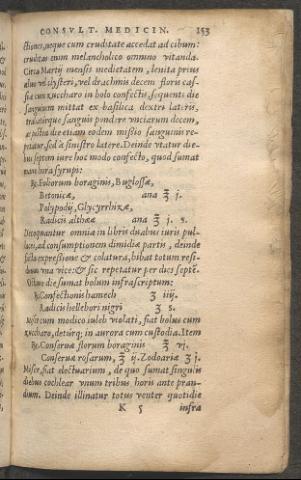 CONSVLT. MEDICIN. 153
ctiones, neque cum cruditate accedat ad cibum:
cruditas enim melancholico omnino vitanda.
Circa Martij mensis medietatem, lenita prius
aluo vel clysteri, vel drachmis decem floris cas-
siæ cum zuccharo in bolo confectis, sequenti die
sanguinem mittat ex basilica dextri lateris,
trahaturque sanguis pondere vnciarum decem,
ac postera die etiam eodem missio sanguinis re-
petatur, sed a sinistro latere. Deinde vtatur die-
bus septem iure hoc modo confecto, quod sumat
mane hora syrupi:
℞. Foliorum boraginis, Buglossæ,
Betonicæ, ana ℥ j.
Polypodij, Glycyrrhizæ,
Radicis altheæ ana ℥ j. s.
Decoquantur omnia in libris duabus iuris pul-
lacei, ad consumptionem dimidiæ partis, deinde
facta expressione & colatura, bibat totum resi-
duum vna vice: & sic repetatur per dies septē.
Octauo die sumat bolum infrascriptum:
℞. Confectionis hamech ʒ iiij.
Radicis hellebori nigri ʒ s.
Misce cum modico iuleb violati, fiat bolus cum
zuccharo, deturq; in aurora cum custodia. Item
℞. Conseruæ florum boraginis ℥ vj.
Conseruæ rosarum, ℥ ij. Zedoariæ ʒ j.
Misce, fiat electuarium, de quo sumat singulis
diebus cochlear vnum tribus horis ante pran-
dium. Deinde illinatur totus venter quotidie
K 5 infra